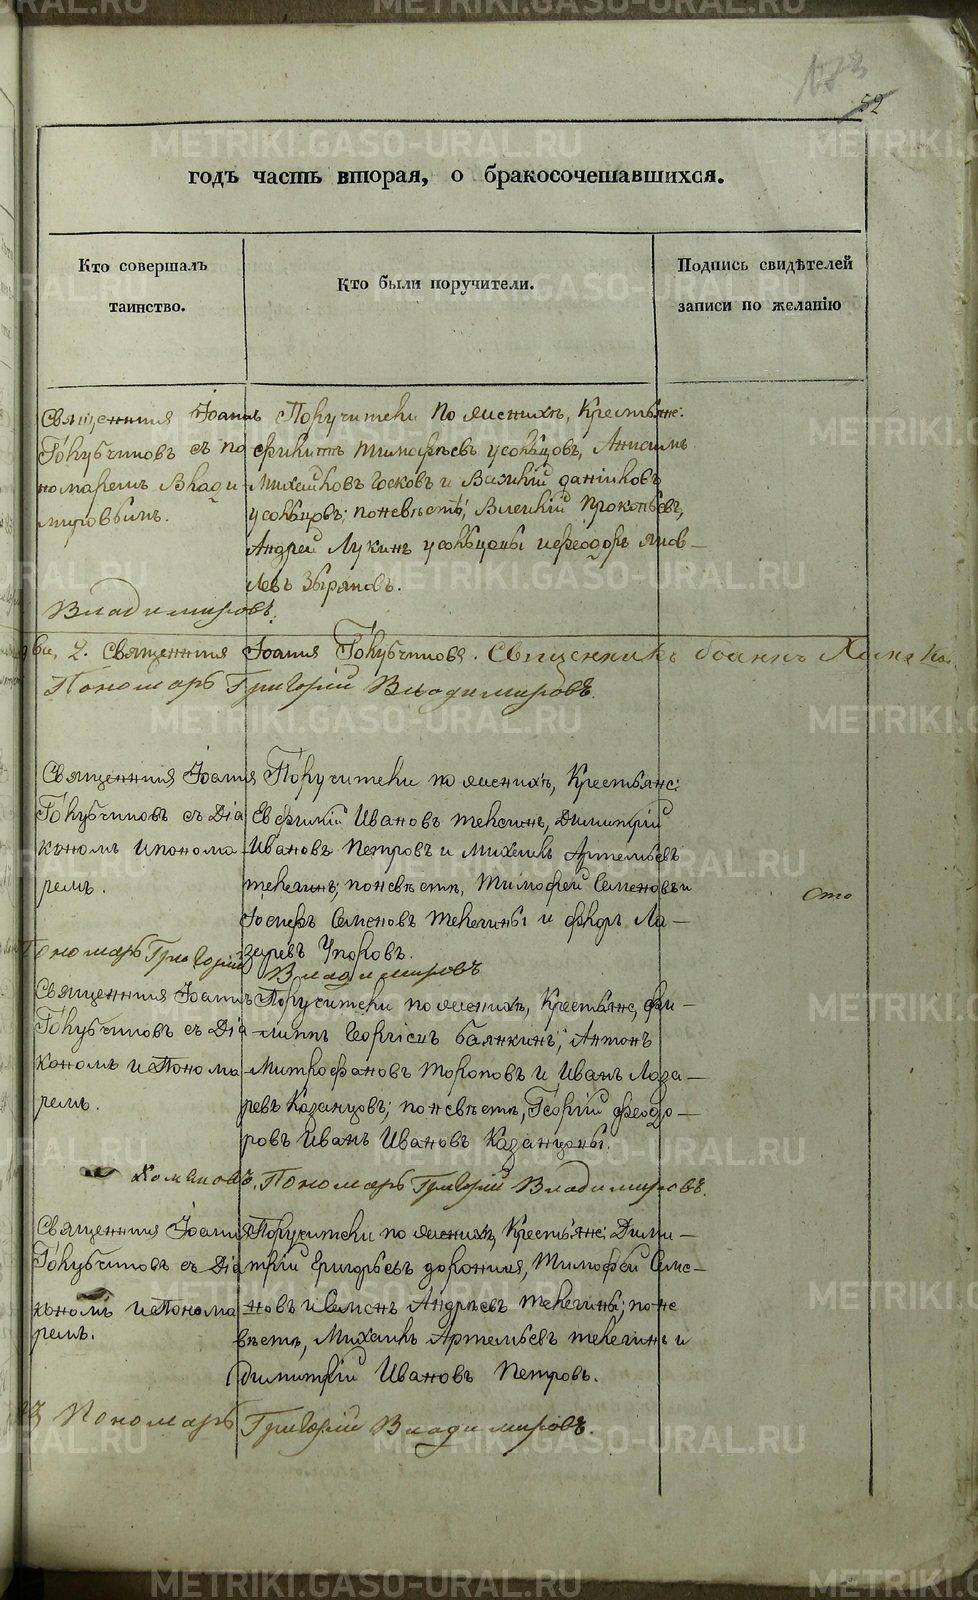 52
годъ часть вторая, о бракосочетавшихся.
Кто совершалъ
таинство.
Кто были поручители.
Подпись свидѣтелей
записи по желанію
Священникъ Іоаннъ
Голубчиковъ съ по
номаремъ Влади
мировымъ.
Поручители по женихѣ, Крестьяне:
Тимофѣевъ усольцовъ, Анисимъ
Михайловъ и Василій даниловъ
усольцовъ; по невѣстѣ, Прокопьевъ,
Андрей Лукинъ усольцовы и феодоръ яков-
левъ Зыряновъ.
Владимировъ.
2. Священникъ Іоаннъ Голубчиковъ. Священникъ Іоаннъ
Пономарь Григорій Владимировъ.
Священникъ Іоаннъ
Голубчиковъ съ Діа
кономъ и понома
ремъ.
Поручители по женихѣ, Крестьяне:
Евфимій Ивановъ телегинъ, Димитрій
Ивановъ Петровъ и Михаилъ Артемьевъ
телегинъ; по невѣстѣ, Тимофей Семеновъ и
Іосифъ Семеновъ телегины и Ла-
заревъ
Сто
Пономарь Григорій Владимировъ
Священникъ Іоаннъ
Голубчиковъ съ Діа
кономъ и Понома
ремъ.
Поручители по женихѣ, Крестьяне, фи-
липпъ Георгіевъ балакинъ, Антонъ
Митрофановъ Тороповъ и Иванъ Лаза-
ревъ Казанцовъ; по невѣстѣ, Георгій феодо-
ровъ Иванъ Ивановъ Казанцовы.
Хомяковъ. Пономарь Григорій Владимировъ.
Священникъ Іоаннъ
Голубчиковъ съ Діа
кономъ и Понома
ремъ.
Поручители по женихѣ, Крестьяне: Дими-
трій Григорьевъ Тимофей Семе-
новъ и Семенъ Андреевъ телегины; по не
вѣстѣ, Михаилъ Артемьевъ телегинъ и
Димитрій Ивановъ Петровъ.
Пономарь Григорій Владимировъ.
METRIKI.GASO-URAL.RU